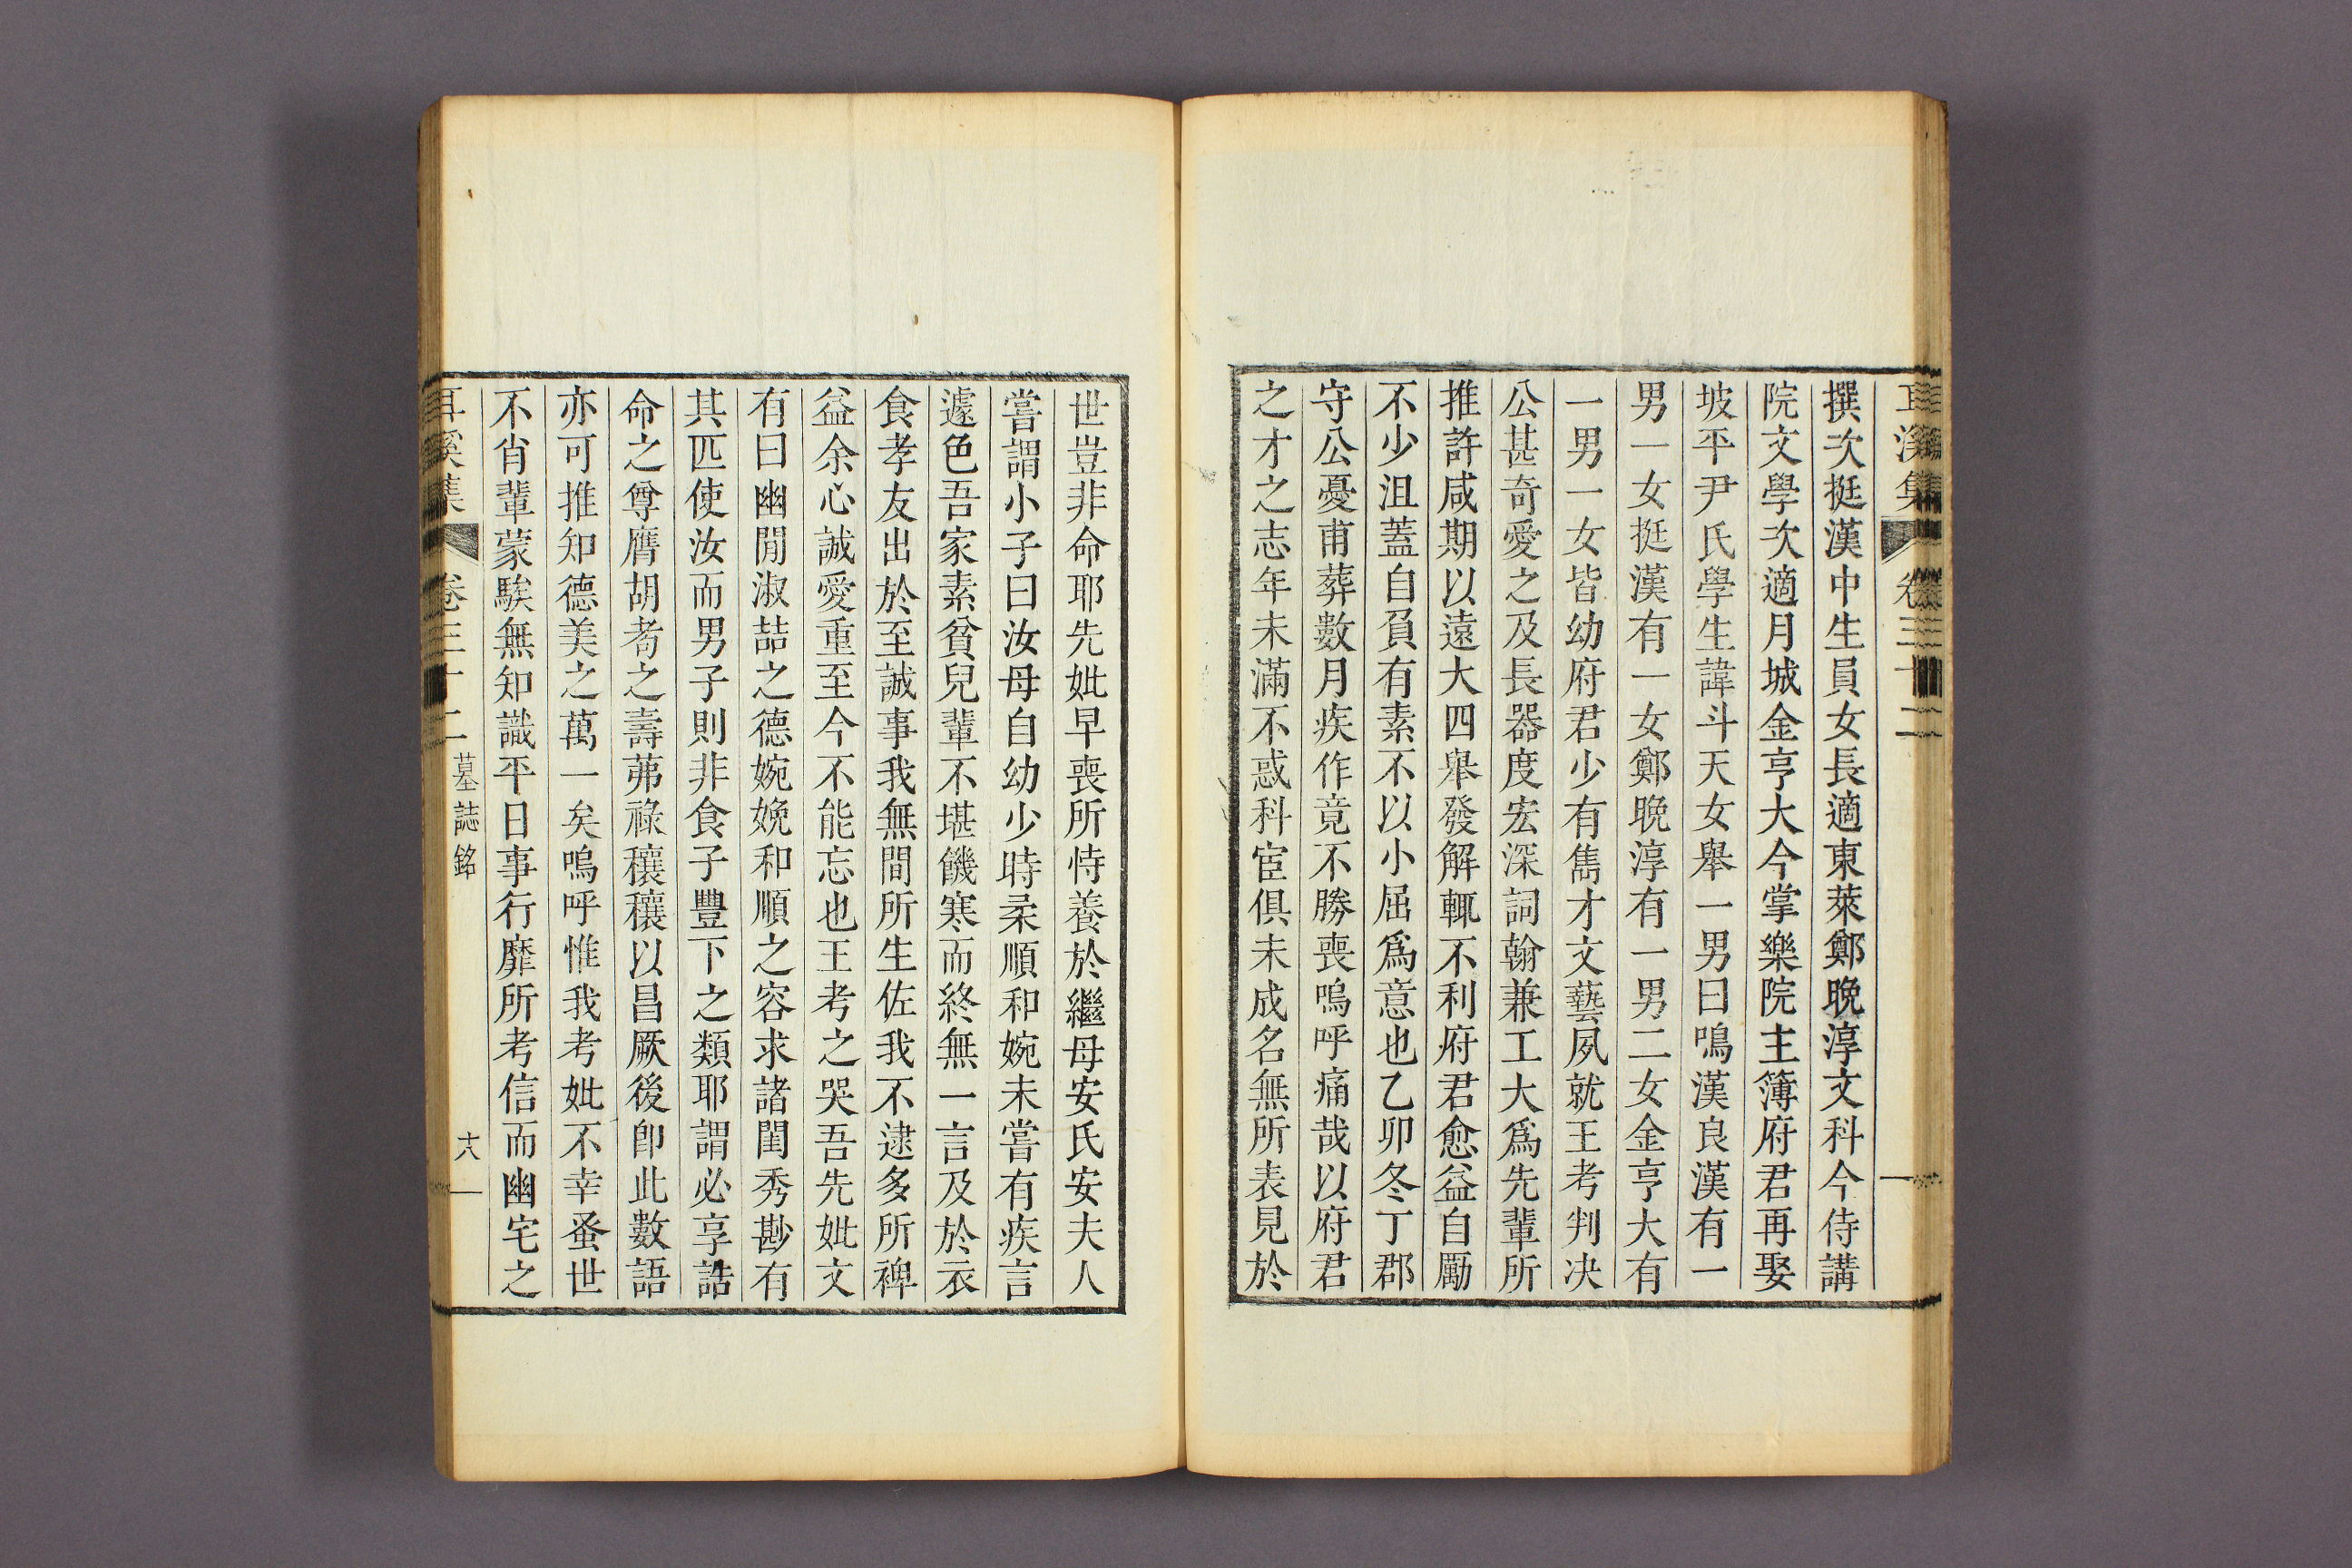 撰次挺漢中生員女長適東萊鄭晩淳文科今侍講
院文學次適月城金亨大今掌樂院主簿府君再娶
坡平尹氏學生諱斗天女舉一男曰鳴漢良漢有一
男一女挺漢有一女鄭晩淳有一男二女金亨大有
一男一女皆幼府君少有雋才文藝夙就王考判决
公甚奇愛之及長器度宏深詞翰兼工大爲先輩所
推許咸期以遠大四舉發解輒不利府君愈益自勵
不少沮蓋自負有素不以小屈爲意也乙卯冬丁郡
守公憂甫葬數月疾作竟不勝喪嗚呼痛哉以府君
之才之志年未滿不惑科宦俱未成名無所表見於
世豈非命耶先妣早喪所恃養於繼母安氏安夫人
嘗謂小子曰汝母自幼少時柔順和婉未嘗有疾言
遽色吾家素貧兒輩不堪饑寒而終無一言及於衣
食孝友出於至誠事我無間所生佐我不逮多所裨
益余心誠愛重至今不能忘也王考之哭吾先妣文
有曰幽閒淑喆之德婉娩和順之容求諸閨秀尠有
其匹使汝而男子則非食子豊下之類耶謂必享誥
命之尊膺胡耇之壽茀祿穰穰以昌厥後卽此數語
亦可推知德美之萬一矣嗚呼惟我考妣不幸蚤世
不肖輩蒙騃無知識平日事行靡所考信而幽宅之
耳溪集 卷三十二 墓誌銘 六